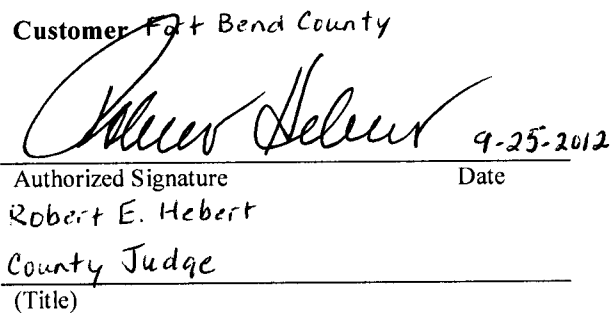 Customer Fort Bend County
Robert Hebert 9-25-2012
Authorized Signature Date
Robert E. Hebert
County Judge
(Title)